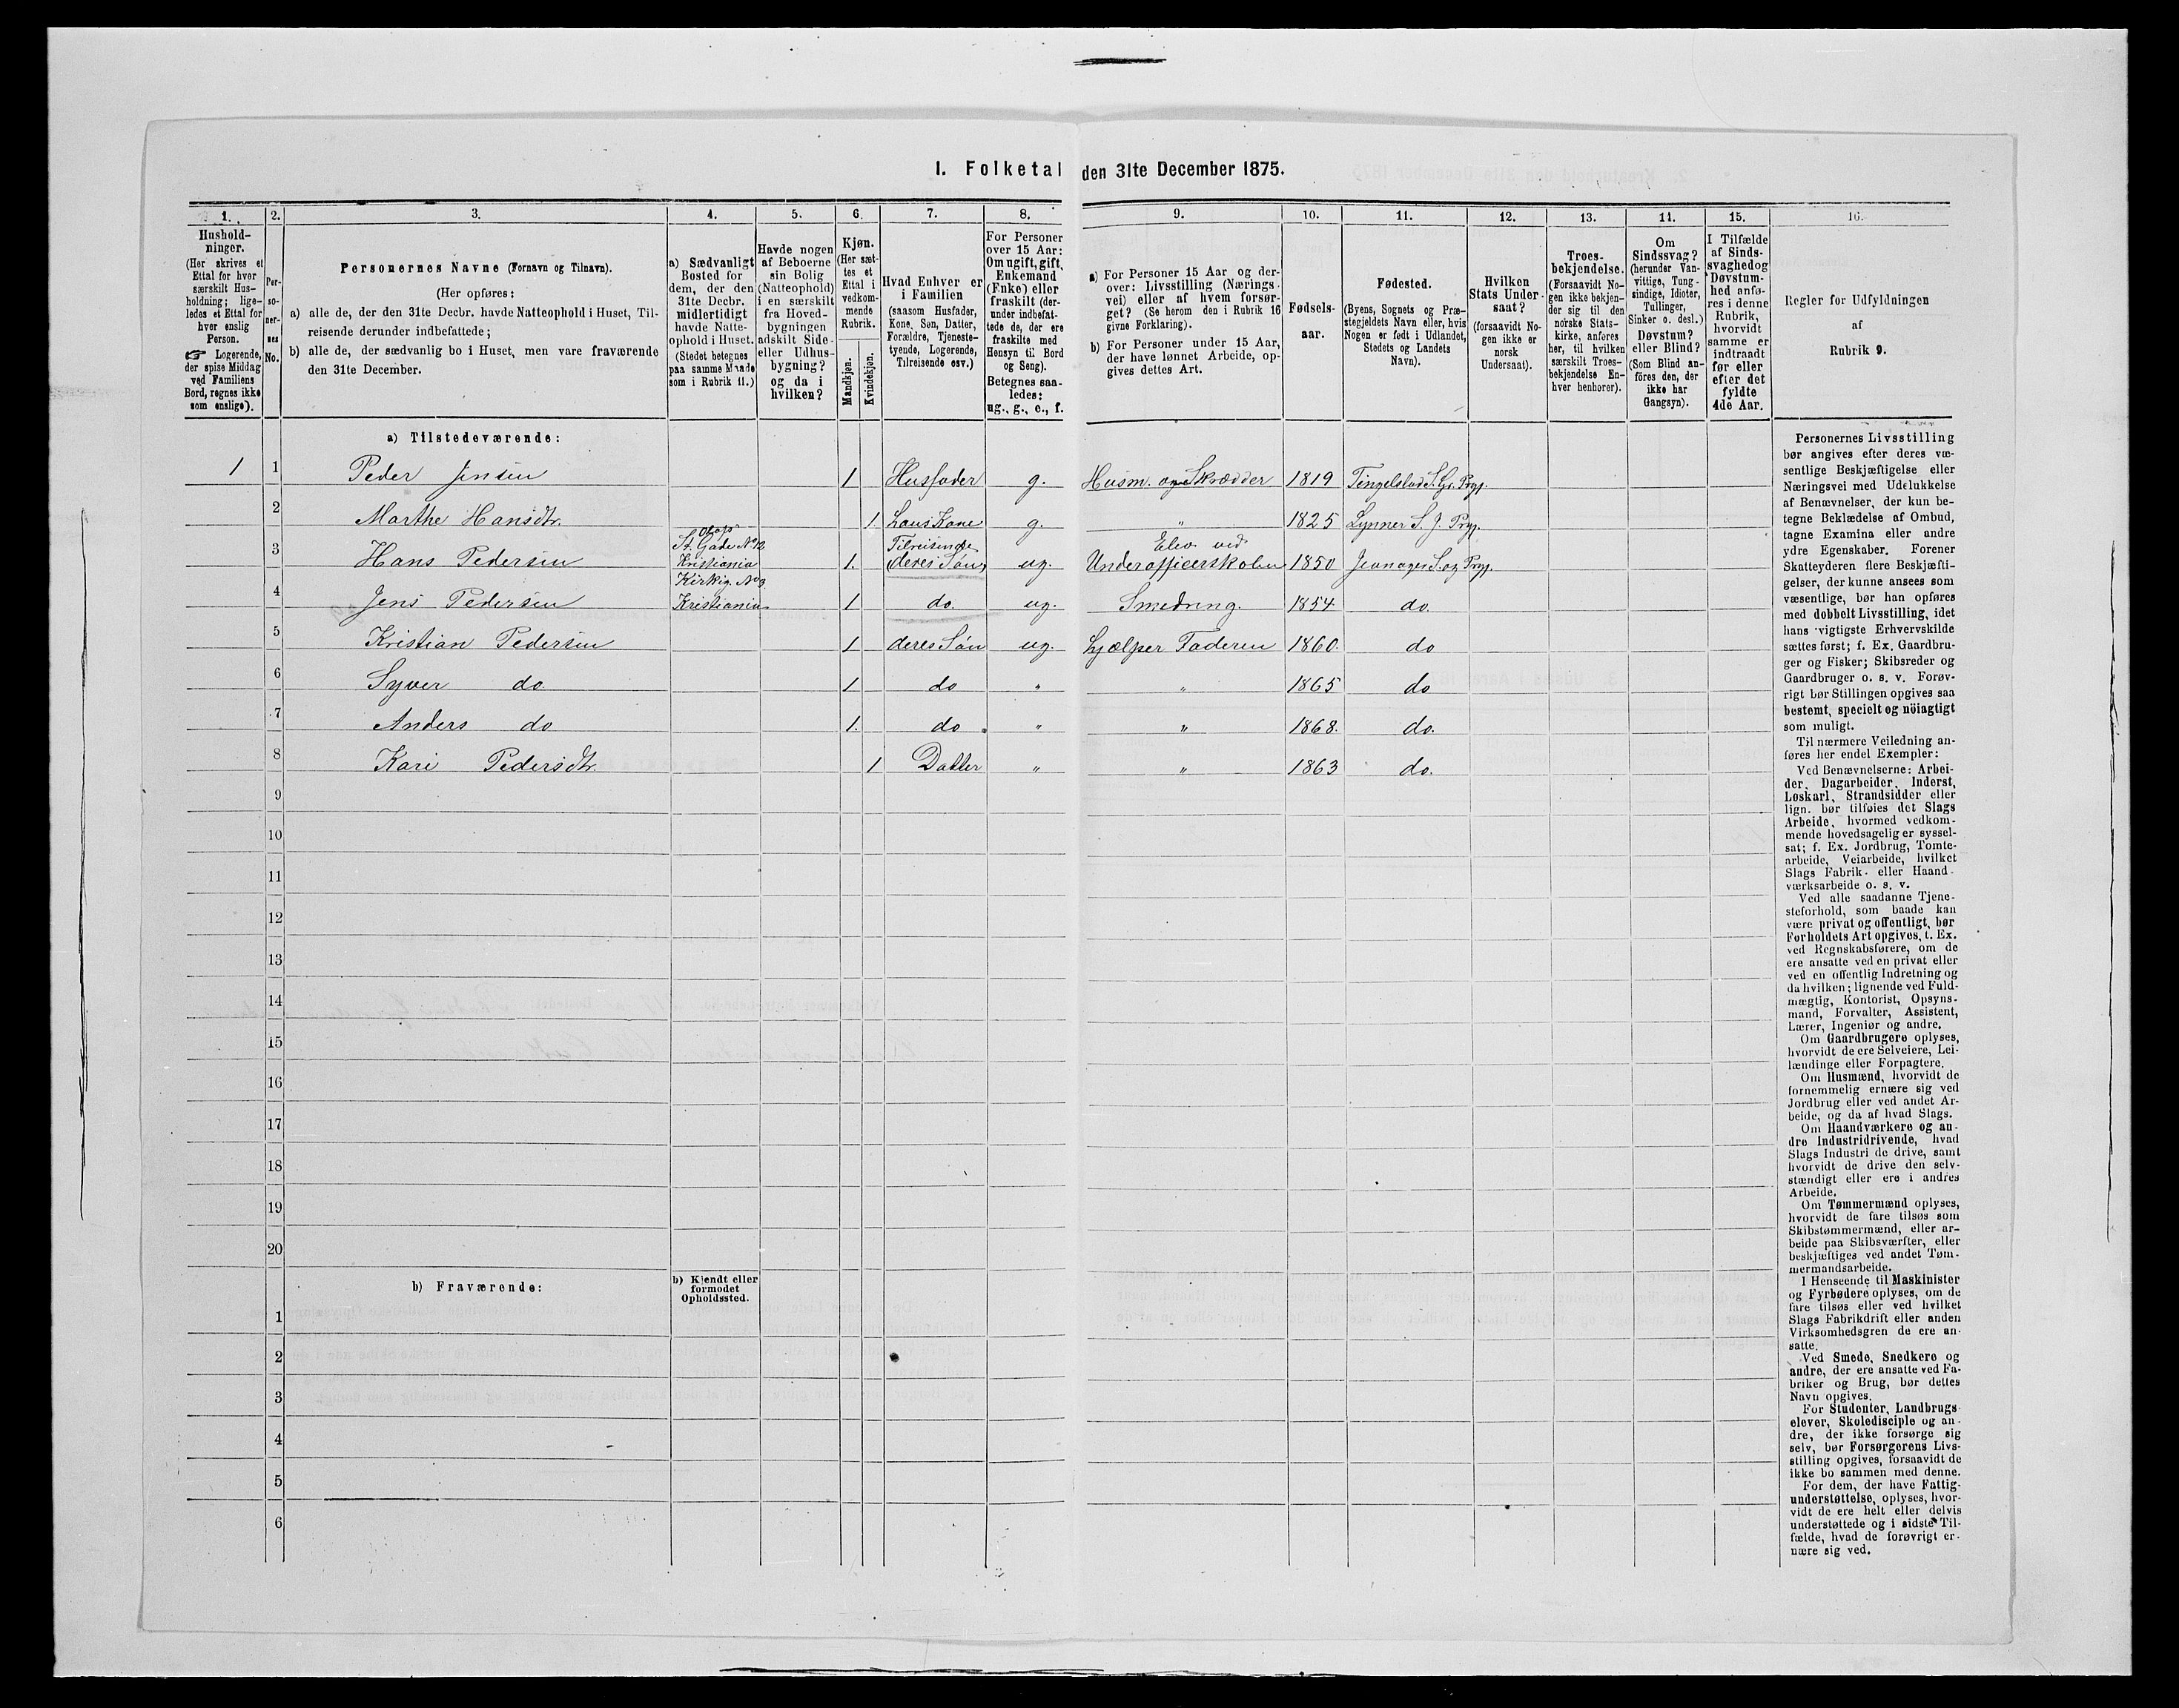 1. Folketal den 31te December 1875.
1. 2. 3. 4. 5. 6. 7. 8. 9. 10. 11. 12. 13. 14. 15. 16.
Hushold-
ninger.
(Her skrives et
Ettal for hver
særskilt Hus-
holdning; lige-
ledes et Ettal for
hver enslig
Person.
☞ Logerende,
der spise Middag
ved Familiens
Bord, regnes ikke
som enslige).
Per-
so-
ner-
nes
No.
Personernes Navne (Fornavn og Tilnavn).
(Her opføres:
a) alle de, der den 31te Decbr. havde Natteophold i Huset, Til-
reisende derunder indbefattede;
b) alle de, der sædvanlig bo i Huset, men vare fraværende
den 31te December.
a) Sædvanligt
Bosted for
dem, der den
31te Decbr.
midlertidigt
havde Natte-
ophold i Huset.
(Stedet betegnes
paa samme Maade
som i Rubrik 11.)
Havde nogen
af Beboerne
sin Bolig
(Natteophold)
i en særskilt
fra Hoved-
bygningen
adskilt Side-
eller Udhus-
bygning?
og da i
hvilken?
Kjøn.
(Her sæt-
tes et
Ettal i
vedkom-
mende
Rubrik.
Mandkjøn.
Kvindekjøn.
Hvad Enhver er
i Familien
(saasom Husfader,
Kone, Søn, Datter,
Forældre, Tjeneste-
tyende, Logerende,
Tilreisende osv.)
For Personer
over 15 Aar:
Om ugift, gift,
Enkemand
(Enke) eller
fraskilt (der-
under indbefat-
tede de, der ere
fraskilte med
Hensyn til Bord
og Seng).
Betegnes saa-
ledes:
ug., g., e., f.
a) For Personer 15 Aar og der-
over: Livsstilling (Nærings-
vei) eller af hvem forsør-
get? (Se herom den i Rubrik 16
givne Forklaring).
b) For Personer under 15 Aar,
der have lønnet Arbeide, op-
gives dettes Art.
Fødsels-
aar.
Fødested.
(Byens, Sognets og Præ-
stegjeldets Navn eller, hvis
Nogen er født i Udlandet,
Stedets og Landets
Navn).
Hvilken
Stats Under-
saat?
(forsaavidt No-
gen ikke er
norsk
Undersaat).
Troes-
bekjendelse.
(Forsaavidt No-
gen ikke bekjen-
der sig til den
norske Stats-
kirke, anføres
her, til hvilken
særskilt Troes-
bekjendelse En-
hver henhører).
Om
Sindssvag?
(herunder Van-
vittige, Tung-
sindige, Idioter,
Tullinger,
Sinker o. desl.)
Døvstum?
eller Blind?
(Som Blind an-
föres den, der
ikke har
Gangsyn).
I Tilfælde
af Sinds-
svaghed og
Døvstum-
hed anfø-
res i denne
Rubrik,
hvorvidt
samme er
indtraadt
før eller
efter det
fyldte
4de Aar.
Regler for Udfyldningen
af
Rubrik 9.
a) Tilstedeværende:
1 1 Peder Jensen 1 Husfader g. Husm. og Skrædder 1819 Tingelstad S. Gr. Prgj.
2 Marthe Hansdtr. 1 hans Kone g. " 1825 Lynner S. J. Prgj.
3 Hans Pedersen St. Olafs Gade No 12 Kristiania 1. Tilreisende deres Søn ug. Elev ved Underofficerskolen 1850 Jevnager S. og Prgj.
4 Jens Pedersen Kirkig. No 9 Kristiania 1 do. ug. Smedreng. 1854 do
5 Kristian Pedersen 1 deres Søn ug. hjælper Faderen 1860. do
6 Syver do 1 do " " 1865 do
7 Anders do 1. do " " 1868. do.
8 Kari Pedersdtr. 1 Datter " " 1863 do.
9
10
11
12
13
14
15
16
17
18
19
20
b) Fraværende:
b) Kjendt eller
formodet
Opholdssted.
1
2
3
4
5
6
Personernes Livsstilling
bør angives efter deres væ-
sentlige Beskjæftigelse eller
Næringsvei med Udelukkelse
af Benævnelser, der kun be-
tegne Beklædelse af Ombud,
tagne Examina eller andre
ydre Egenskaber. Forener
Skatteyderen flere Beskjæfti-
gelser, der kunne ansees som
væsentlige, bør han opføres
med dobbelt Livsstilling, idet
hans vigtigste Erhvervskilde
sættes først; f. Ex. Gaardbru-
ger og Fisker; Skibsreder og
Gaardbruger o. s. v. Forøv-
rigt bør Stillingen opgives saa
bestemt, specielt og nöiagtigt
som muligt.
Til nærmere Veiledning an-
føres her endel Exempler:
Ved Benævnelserne: Arbei-
der, Dagarbeider, Inderst,
Løskarl, Strandsidder eller
lign. bør tilføies det Slags
Arbeide, hvormed vedkom-
mende hovedsagelig er syssel-
sat; f. Ex. Jordbrug, Tomte-
arbeide, Veiarbeide, hvilket
Slags Fabrik- eller Haand-
værksarbeide o. s. v.
Ved alle saadanne Tjene-
steforhold, som baade kan
være privat og offentligt, bør
Forholdets Art opgives, t. Ex.
ved Regnskabsførere, om de
ere ansatte ved en privat eller
ved en offentlig Indretning og
da hvilken; lignende ved Fuld-
mægtig, Kontorist, Opsyns-
mand, Forvalter, Assistent,
Lærer, Ingeniør og andre.
Om Gaardbrugere oplyses,
hvorvidt de ere Selveiere, Lei-
lændinge eller Forpagtere.
Om Husmænd, hvorvidt de
fornemmelig ernære sig ved
Jordbrug eller ved andet Ar-
beide, og da af hvad Slags.
Om Haandværkere og an-
dre Industridrivende, hvad
Slags Industri de drive, samt
hvorvidt de drive den selv-
stændigt eller ere i andres
Arbeide.
Om Tømmermænd oplyses,
hvorvidt de fare tilsøs som
Skibstømmermænd, eller ar-
beide paa Skibsværfter, eller
beskjæftiges ved andet Tøm-
mermandsarbeide.
I Henseende til Maskinister
og Fyrbødere oplyses, om de
fare tilsøs eller ved hvilket
Slags Fabrikdrift eller anden
Virksomhedsgren de ere an-
satte.
Ved Smede, Snedkere og
andre, der ere ansatte ved Fa-
briker og Brug, bør dettes
Navn opgives.
For Studenter, Landbrugs-
elever, Skoledisciple og an-
dre, der ikke forsørge sig
selv, bør Forsørgerens Livs-
stilling opgives, forsaavidt de
ikke bo sammen med denne.
For dem, der have Fattig-
understøttelse, oplyses, hvor-
vidt de ere helt eller delvis
understøttede og i sidste Til-
fælde, hvad de forøvrigt er-
nære sig ved.